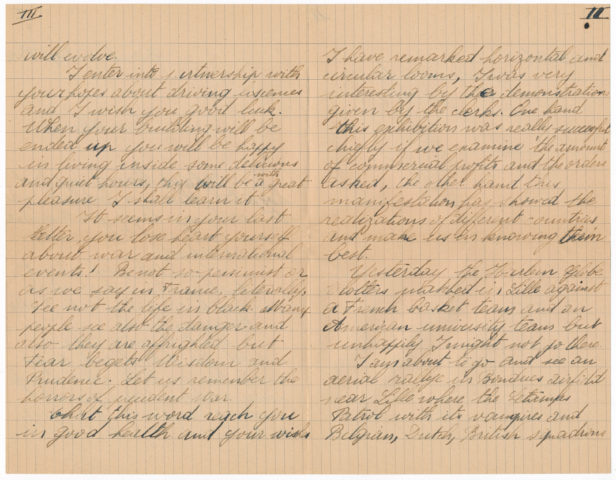 III
will evolve
I enter into partnership with
your hopes about driving licences
and I wish you good luck.
When your building will be
ended up you will be happy
in living inside some delicious
and quiet hours, this will be with a great
pleasure I shall learn it
It seems in your last
letter you lose heart yourself
about war and international
events! Be not so pessimist or
as we say in France, literaly:
See not the life in black
people see also the danger and
also they are affrighted but
Fear begets Wisdom and
Prudence. Let us remember the
horrors of war
this word reach you
in good health and your wishes
II
I have remarked horizontal and
circular looms, I was very
interesting by the demonstration
given by the clerks. One hand
this exhibition was really successful
if we examine the amount
of commercial profits and the orders
asked, the other hand this
manifestation has showed the
realizations of different countries
and make us in knowing them
best.
Yesterday the Harlem Globe
trotters matched in Lille against
a French basket team and an
American university team but
unhappily I might not go there
I am about to go and see an
aerial rallye in Bondues airfield
near Lille where the Etampes
Patrol with its vampires and
Belgian, Dutch, British squadrons